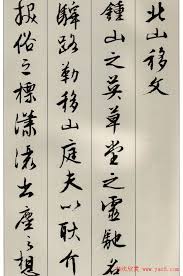 北山移文
鍾山之英草堂之靈馳
驛路勒移山庭夫以耿介
拔俗之標瀟洒出塵之想
www.yac8.com